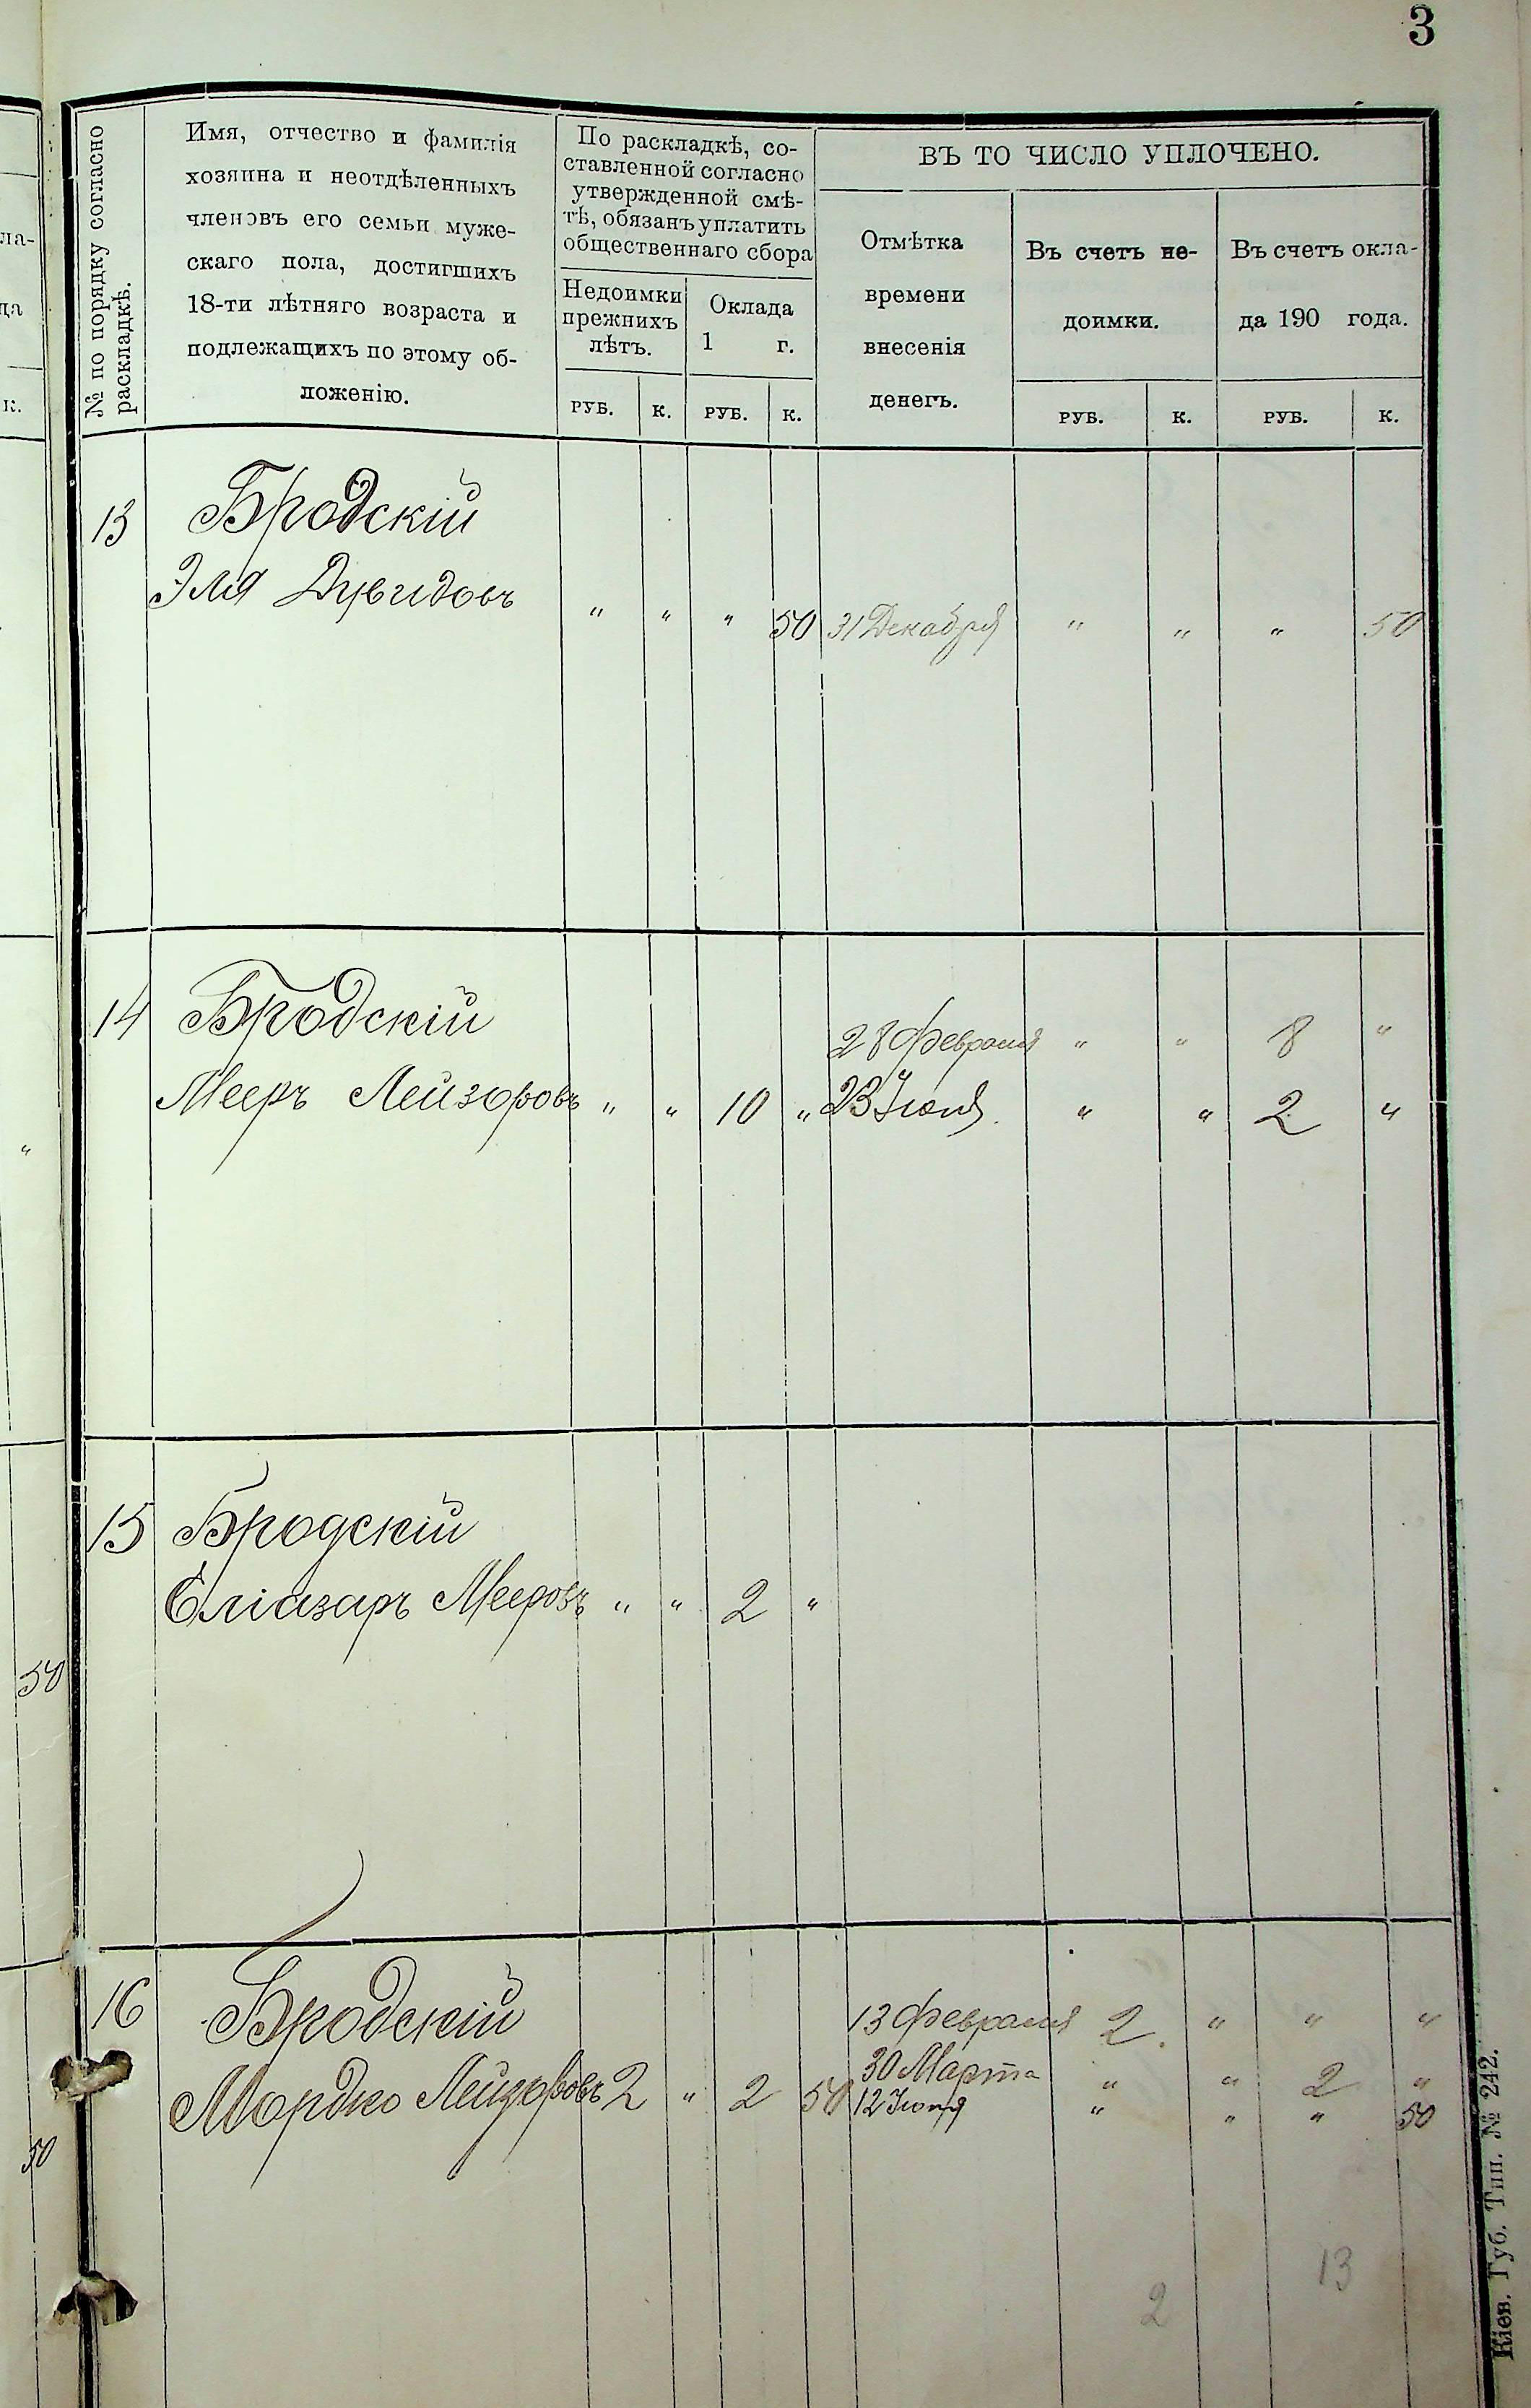 3
№ по порядку согласно
раскладкѣ.
Имя, отчество и фамилія
хозяина и неотдѣленныхъ
членовъ его семьи муже-
скаго пола, достигшихъ
18-ти лѣтняго возраста и
подлежащихъ по этому об-
ложенію.
По раскладкѣ, со-
ставленной согласно
утвержденной смѣ-
тѣ, обязанъ уплатить
общественнаго сбора
Недоимки
прежнихъ
лѣтъ.
Оклада
1 г.
РУБ. К. РУБ. К.
ВЪ ТО ЧИСЛО УПЛОЧЕНО.
Отмѣтка
времени
внесенія
денегъ.
Въ счетъ не-
доимки.
РУБ. К.
Въ счетъ окла-
да 190 года.
РУБ. К.
13 Бродскій
Эля Дувидовъ " " " 50 31 Декабря " " " 50
14 Бродскій 28 Февраля " " 8 "
Мееръ Лейзоровъ " " 10 " 23 Іюля. " " 2 "
15 Бродскій
Еліазаръ Мееровъ " " 2 "
16 Бродскій 13 Февраля 2. " " "
30 Марта " " 2 "
Мордко Лейзоровъ 2 " 2 50 12 Іюня " " " 50
2 13
Кіев. Губ. Тип. № 242.
ла-
да
к.
"
50
50